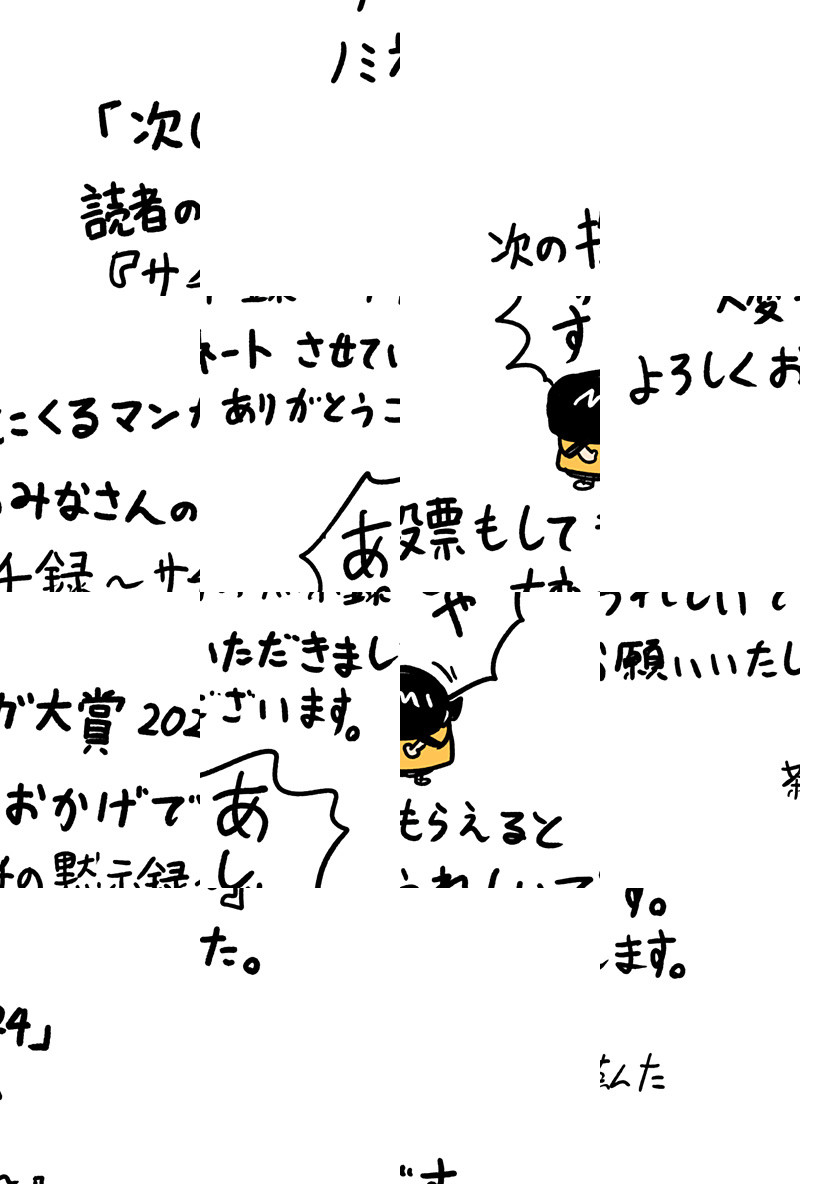 「次にくるマンガ大賞 2024」
読者のみなさんのおかげで、
『サチ録～サチの黙示録～』
ノミネート させていただきました。
ありがとうございます。
次の投票もしてもらえると
大変うれしいです。
よろしくお願いいたします。
茶んた